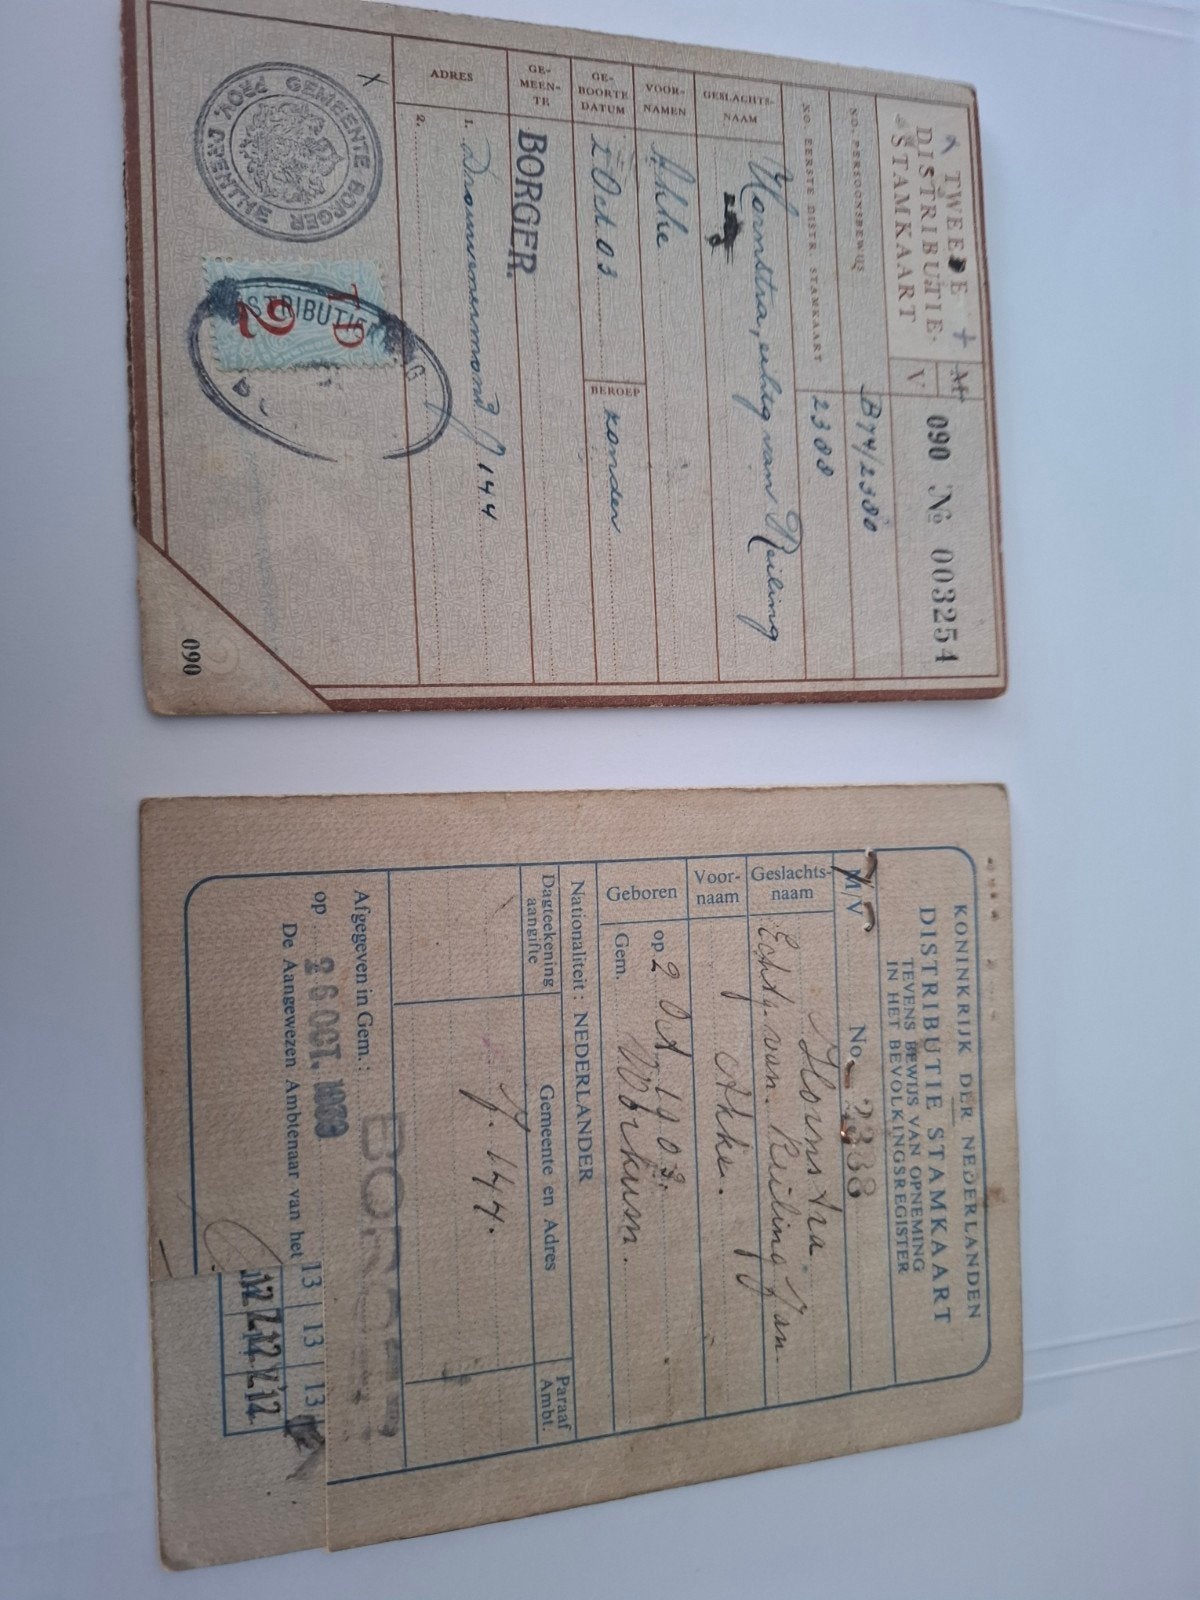 TWEEDE
DISTRIBUTIE-
STAMKAART
M
V
090 № 003254
NO. PERSOONSBEWIJS
B74/2380
NO. EERSTE DISTR. STAMKAART
2388
GESLACHTS-
NAAM
Hornstra, echtg van Reiling
VOOR-
NAMEN
Akke
GE-
BOORTE
DATUM
2 Oct. 03
BEROEP
zonder
GE-
MEEN-
TE
BORGER
ADRES
1. Drouwenermond J 144
2.
X
GEMEENTE BORGER
PROV. DRENTHE
TD
2
DISTRIBUTIE
090
KONINKRIJK DER NEDERLANDEN
DISTRIBUTIE STAMKAART
TEVENS BEWIJS VAN OPNEMING
IN HET BEVOLKINGSREGISTER
M/V
No. 2388
Geslachts-
naam
Hornstra.
Echtg. van. Reiling Jan
Voor-
naam
Akke.
Geboren
op 2 Oct. 1903.
Gem. Workum.
Nationaliteit: NEDERLANDER
Dagteekening
aangifte
Gemeente en Adres
Paraaf
Ambt.
J. 144.
Afgegeven in Gem.: BORGER
op 26 OCT. 1939
De Aangewezen Ambtenaar van het
13 13 13
12 12 12